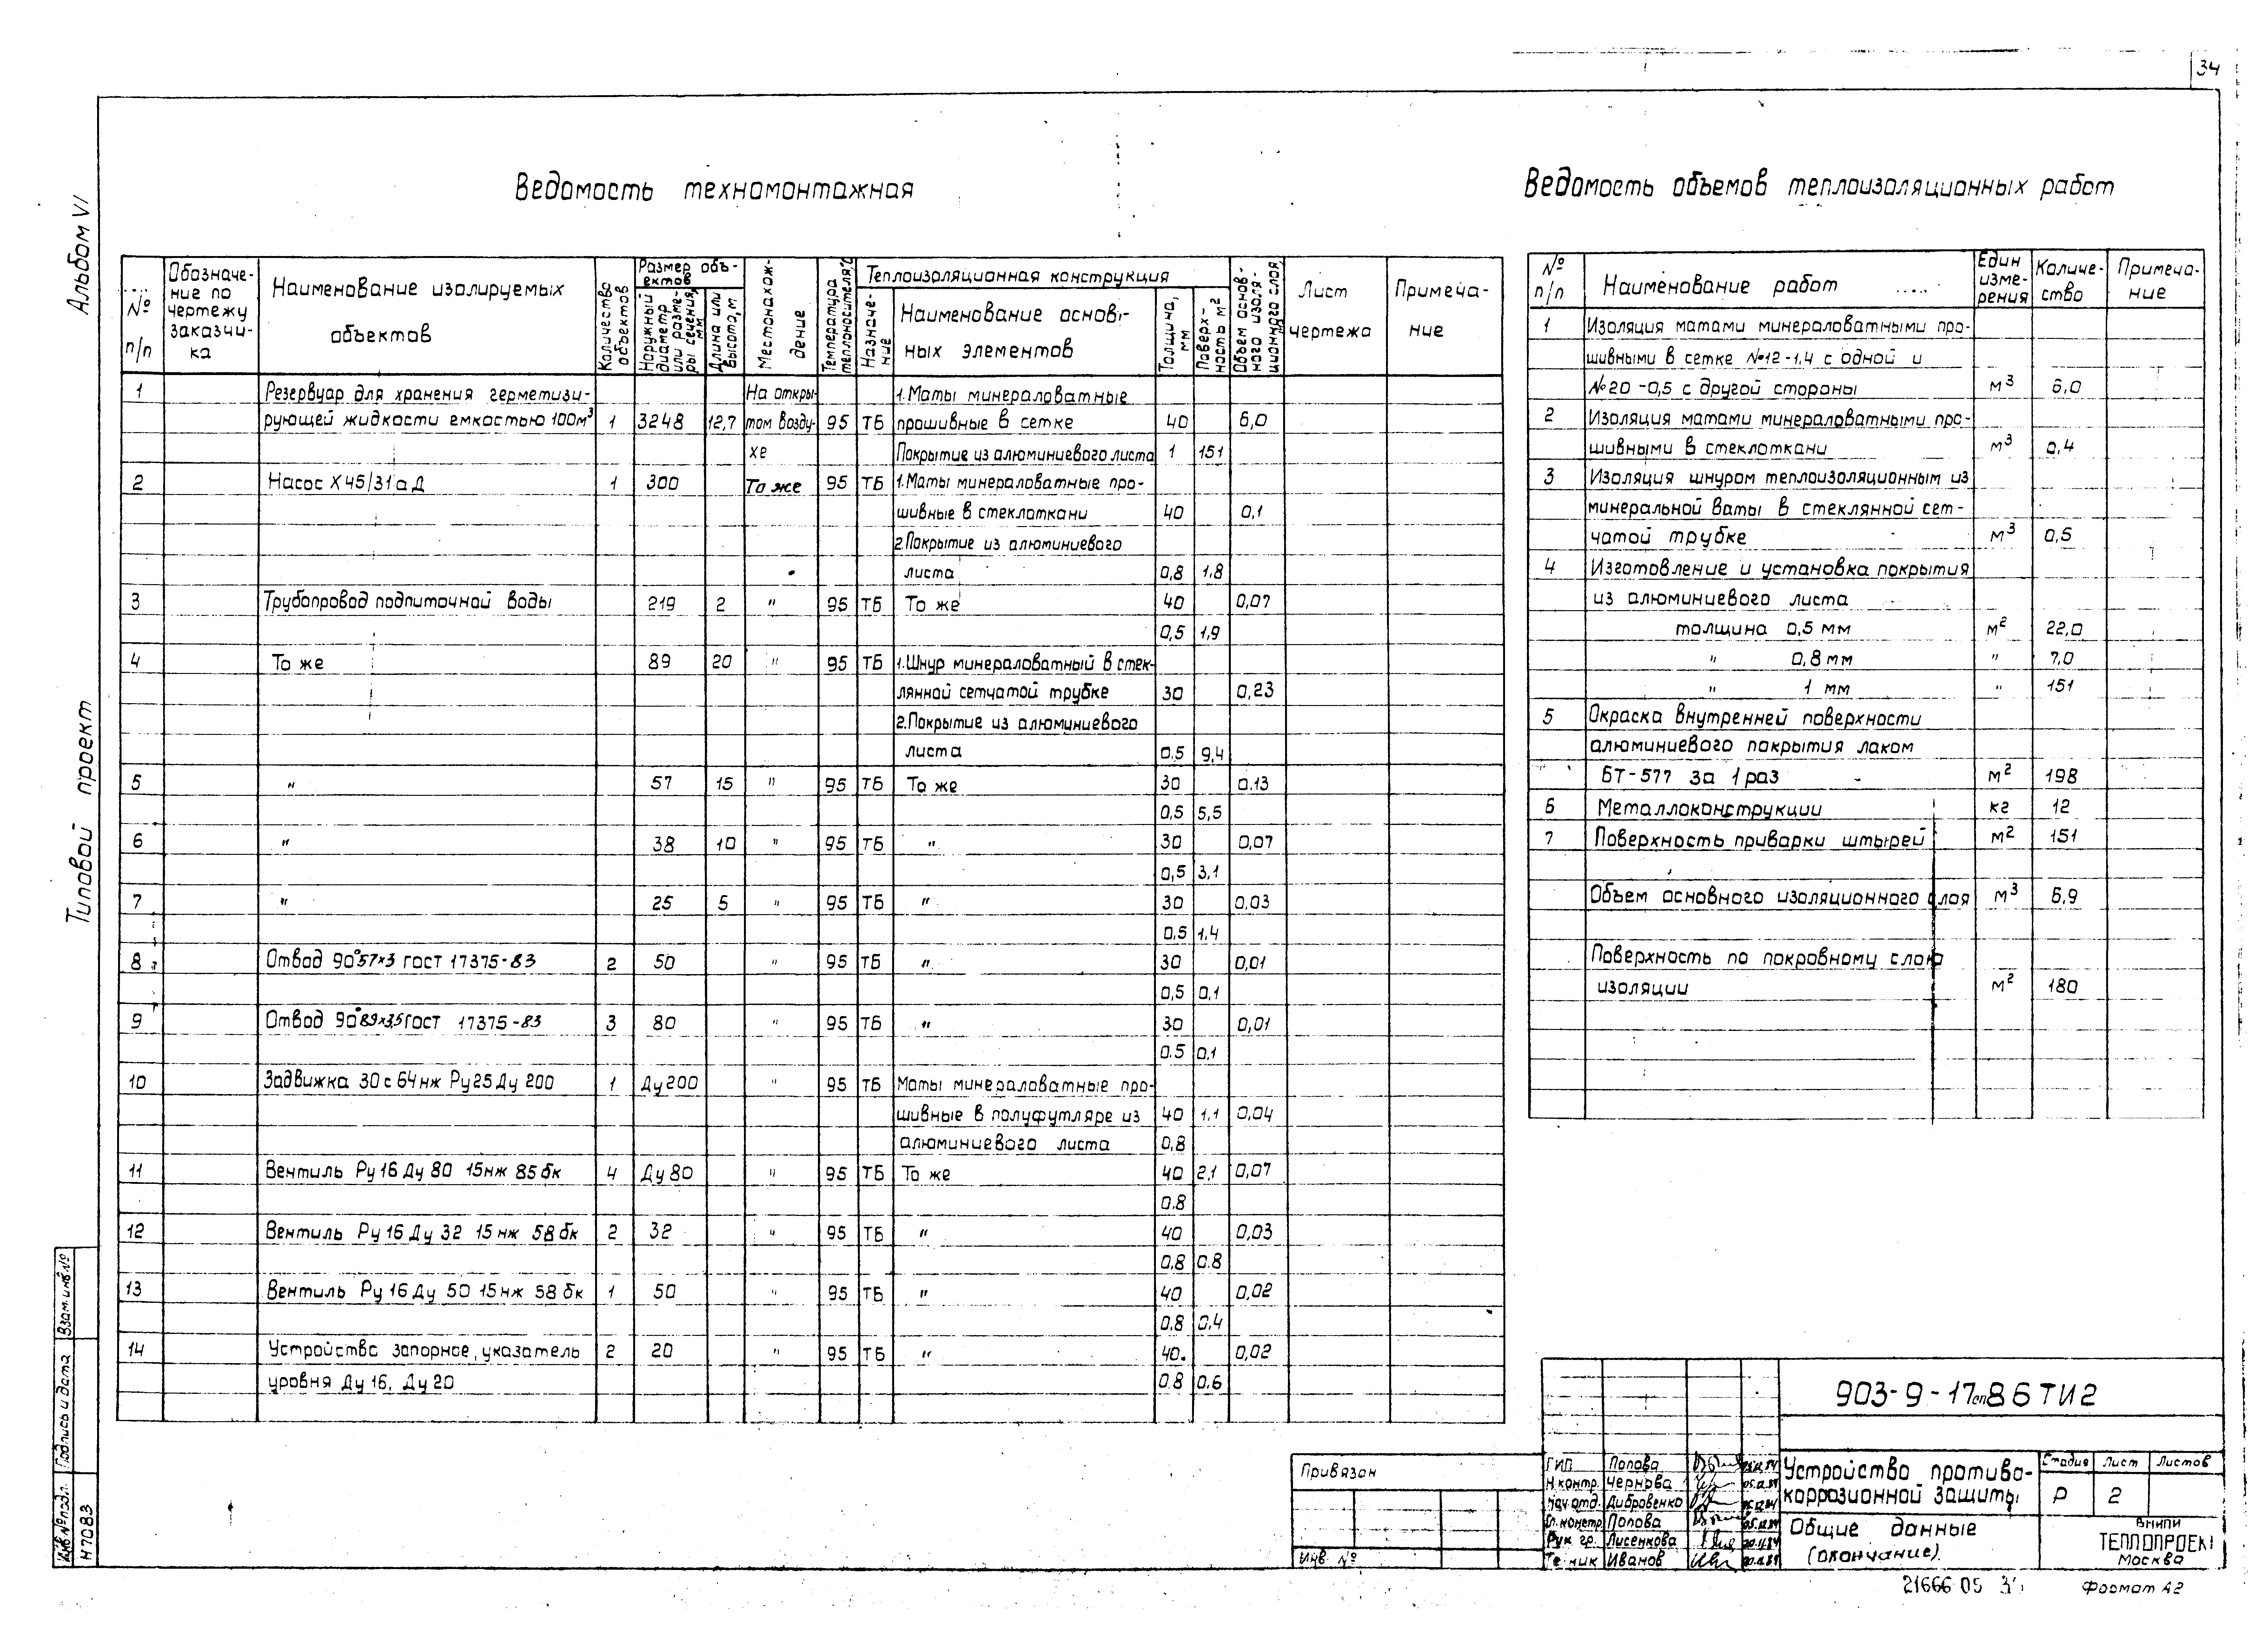 34
Альбом VI
Типовой проект
Ведомость техномонтажная
№ п/п
Обозначе-
ние по
чертежу
заказчи-
ка
Наименование изолируемых
объектов
Количество объектов
Размер объ-
ектов
Наружный диаметр или разме-
ры сечения, мм
Длина или высота, м
Местонахож-
дение
Температура теплоносителя °С
Теплоизоляционная конструкция
Назначе-
ние
Наименование основ-
ных элементов
Толщина, мм
Поверх-
ность м2
Объем основ-
ного изоля-
ционного слоя,
Лист
чертежа
Примеча-
ние
1 Резервуар для хранения герметизи- На откры- 1. Маты минераловатные
рующей жидкости емкостью 100м3 1 3248 12,7 том возду- 95 ТБ прошивные в сетке 40 6,0
хе Покрытие из алюминиевого листа 1 151
2 Насос Х45/31 а Д 1 300 То же 95 ТБ 1. Маты минераловатные про-
шивные в стеклоткани 40 0,1
2. Покрытие из алюминиевого
листа 0,8 1.8
3 Трубопровод подпиточной воды 219 2 " 95 ТБ То же 40 0,07
0,5 1,9
4 То же 89 20 " 95 ТБ 1. Шнур минераловатный в стек-
лянной сетчатой трубке 30 0,23
2. Покрытие из алюминиевого
листа 0.5 9,4
5 " 57 15 " 95 ТБ То же 30 0.13
0,5 5,5
6 " 38 10 " 95 ТБ " 30 0,07
0,5 3,1
7 " 25 5 " 95 ТБ " 30 0,03
0,5 1.4
8 Отвод 90°57×3 ГОСТ 17375-83 2 50 " 95 ТБ " 30 0,01
0,5 0,1
9 Отвод 90°89×3,5 ГОСТ 17375-83 3 80 " 95 ТБ " 30 0,01
0.5 0,1
10 Задвижка 30 с 64 нж Ру25 Ду 200 1 Ду 200 " 95 ТБ Маты минераловатные про-
шивные в полуфутляре из 40 1.1 0,04
алюминиевого листа 0,8
11 Вентиль Ру 16 Ду 80 15нж 85 бк 4 Ду 80 " 95 ТБ То же 40 2,1 0,07
0.8
12 Вентиль Ру 16 Ду 32 15 нж 58 бк 2 32 " 95 ТБ " 40 0,03
0,8 0.8
13 Вентиль Ру 16 Ду 50 15нж 58 бк 1 50 " 95 ТБ " 40 0,02
0.8 0,4
14 Устройство запорное, указатель 2 20 " 95 ТБ " 40. 0,02
уровня Ду 16, Ду 20 0.8 0,6
Ведомость объемов теплоизоляционных работ
№ п/п
Наименование работ
Един
изме-
рения
Количе-
ство
Примеча-
ние
1 Изоляция матами минераловатными про-
шивными в сетке №12-1,4 с одной и
№20-0,5 с другой стороны м3 6,0
2 Изоляция матами минераловатными про-
шивными в стеклоткани м3 0,4
3 Изоляция шнуром теплоизоляционным из
минеральной ваты в стеклянной сет-
чатой трубке м3 0,5
4 Изготовление и установка покрытия
из алюминиевого листа
толщина 0,5 мм м2 22,0
" 0,8 мм " 7,0
" 1 мм " 151
5 Окраска внутренней поверхности
алюминиевого покрытия лаком
БТ-577 за 1 раз м2 198
6 Металлоконструкции кг 12
7 Поверхность приварки штырей м2 151
Объем основного изоляционного слоя м3 6,9
Поверхность по покровному слою
изоляции м2 180
Взам.инв.№
Подпись и дата
Инв.№подл.
Н7083
Привязан
Инв. №
903-9-17сп86 ТИ2
ГИП Попова
Н.контр. Чернова
Нач.отд. Дибровенко
Гл.констр. Попова
Рук. гр. Лисенкова
Техник Иванов
Устройство противо-
коррозионной защиты
Стадия Лист Листов
Р 2
Общие данные
(окончание).
ВНИПИ
ТЕПЛОПРОЕКТ
Москва
21666 05
Формат А2